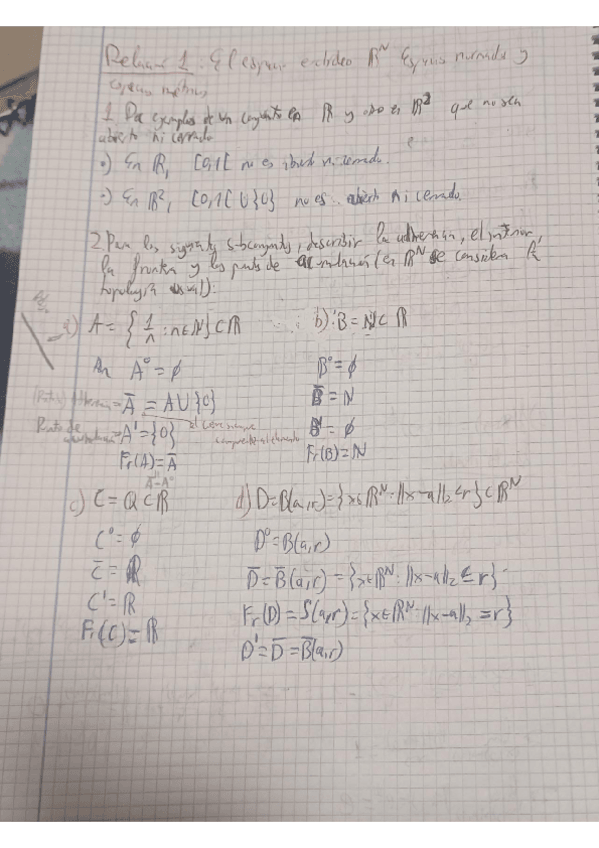 Relación 1: El espacio euclídeo ℝᴺ Espacios normados y
espacios métricos
1. Da ejemplos de un conjunto en ℝ y otro en ℝ² que no sea
abierto ni cerrado
·) En ℝ, [0,1[ no es abierto ni cerrado.
·) En ℝ², [0,1[ ∪ }0} no es abierto ni cerrado.
2. Para los siguientes subconjuntos, describir la adherencia, el interior,
la frontera y los puntos de acumulación (en ℝᴺ se considera la
topología usual):
a) A = {1/n : n∈ℕ} ⊂ ℝ
A° = ∅
Ā = A ∪ {0}
Puntos de acumulación = A' = {0}
Fr(A) = Ā
Ā - A°
b) B = ℕ ⊂ ℝ
B° = ∅
B̄ = ℕ
B' = ∅
Fr(B) = ℕ
c) C = ℚ ⊂ ℝ
C° = ∅
C̄ = ℝ
C' = ℝ
Fr(C) = ℝ
d) D = B(a,r) = {x∈ℝᴺ : ||x-a||₂ < r} ⊂ ℝᴺ
D° = B(a,r)
D̄ = B̄(a,r) = {x∈ℝᴺ : ||x-a||₂ ≤ r}
Fr(D) = S(a,r) = {x∈ℝᴺ : ||x-a||₂ = r}
D' = D̄ = B̄(a,r)